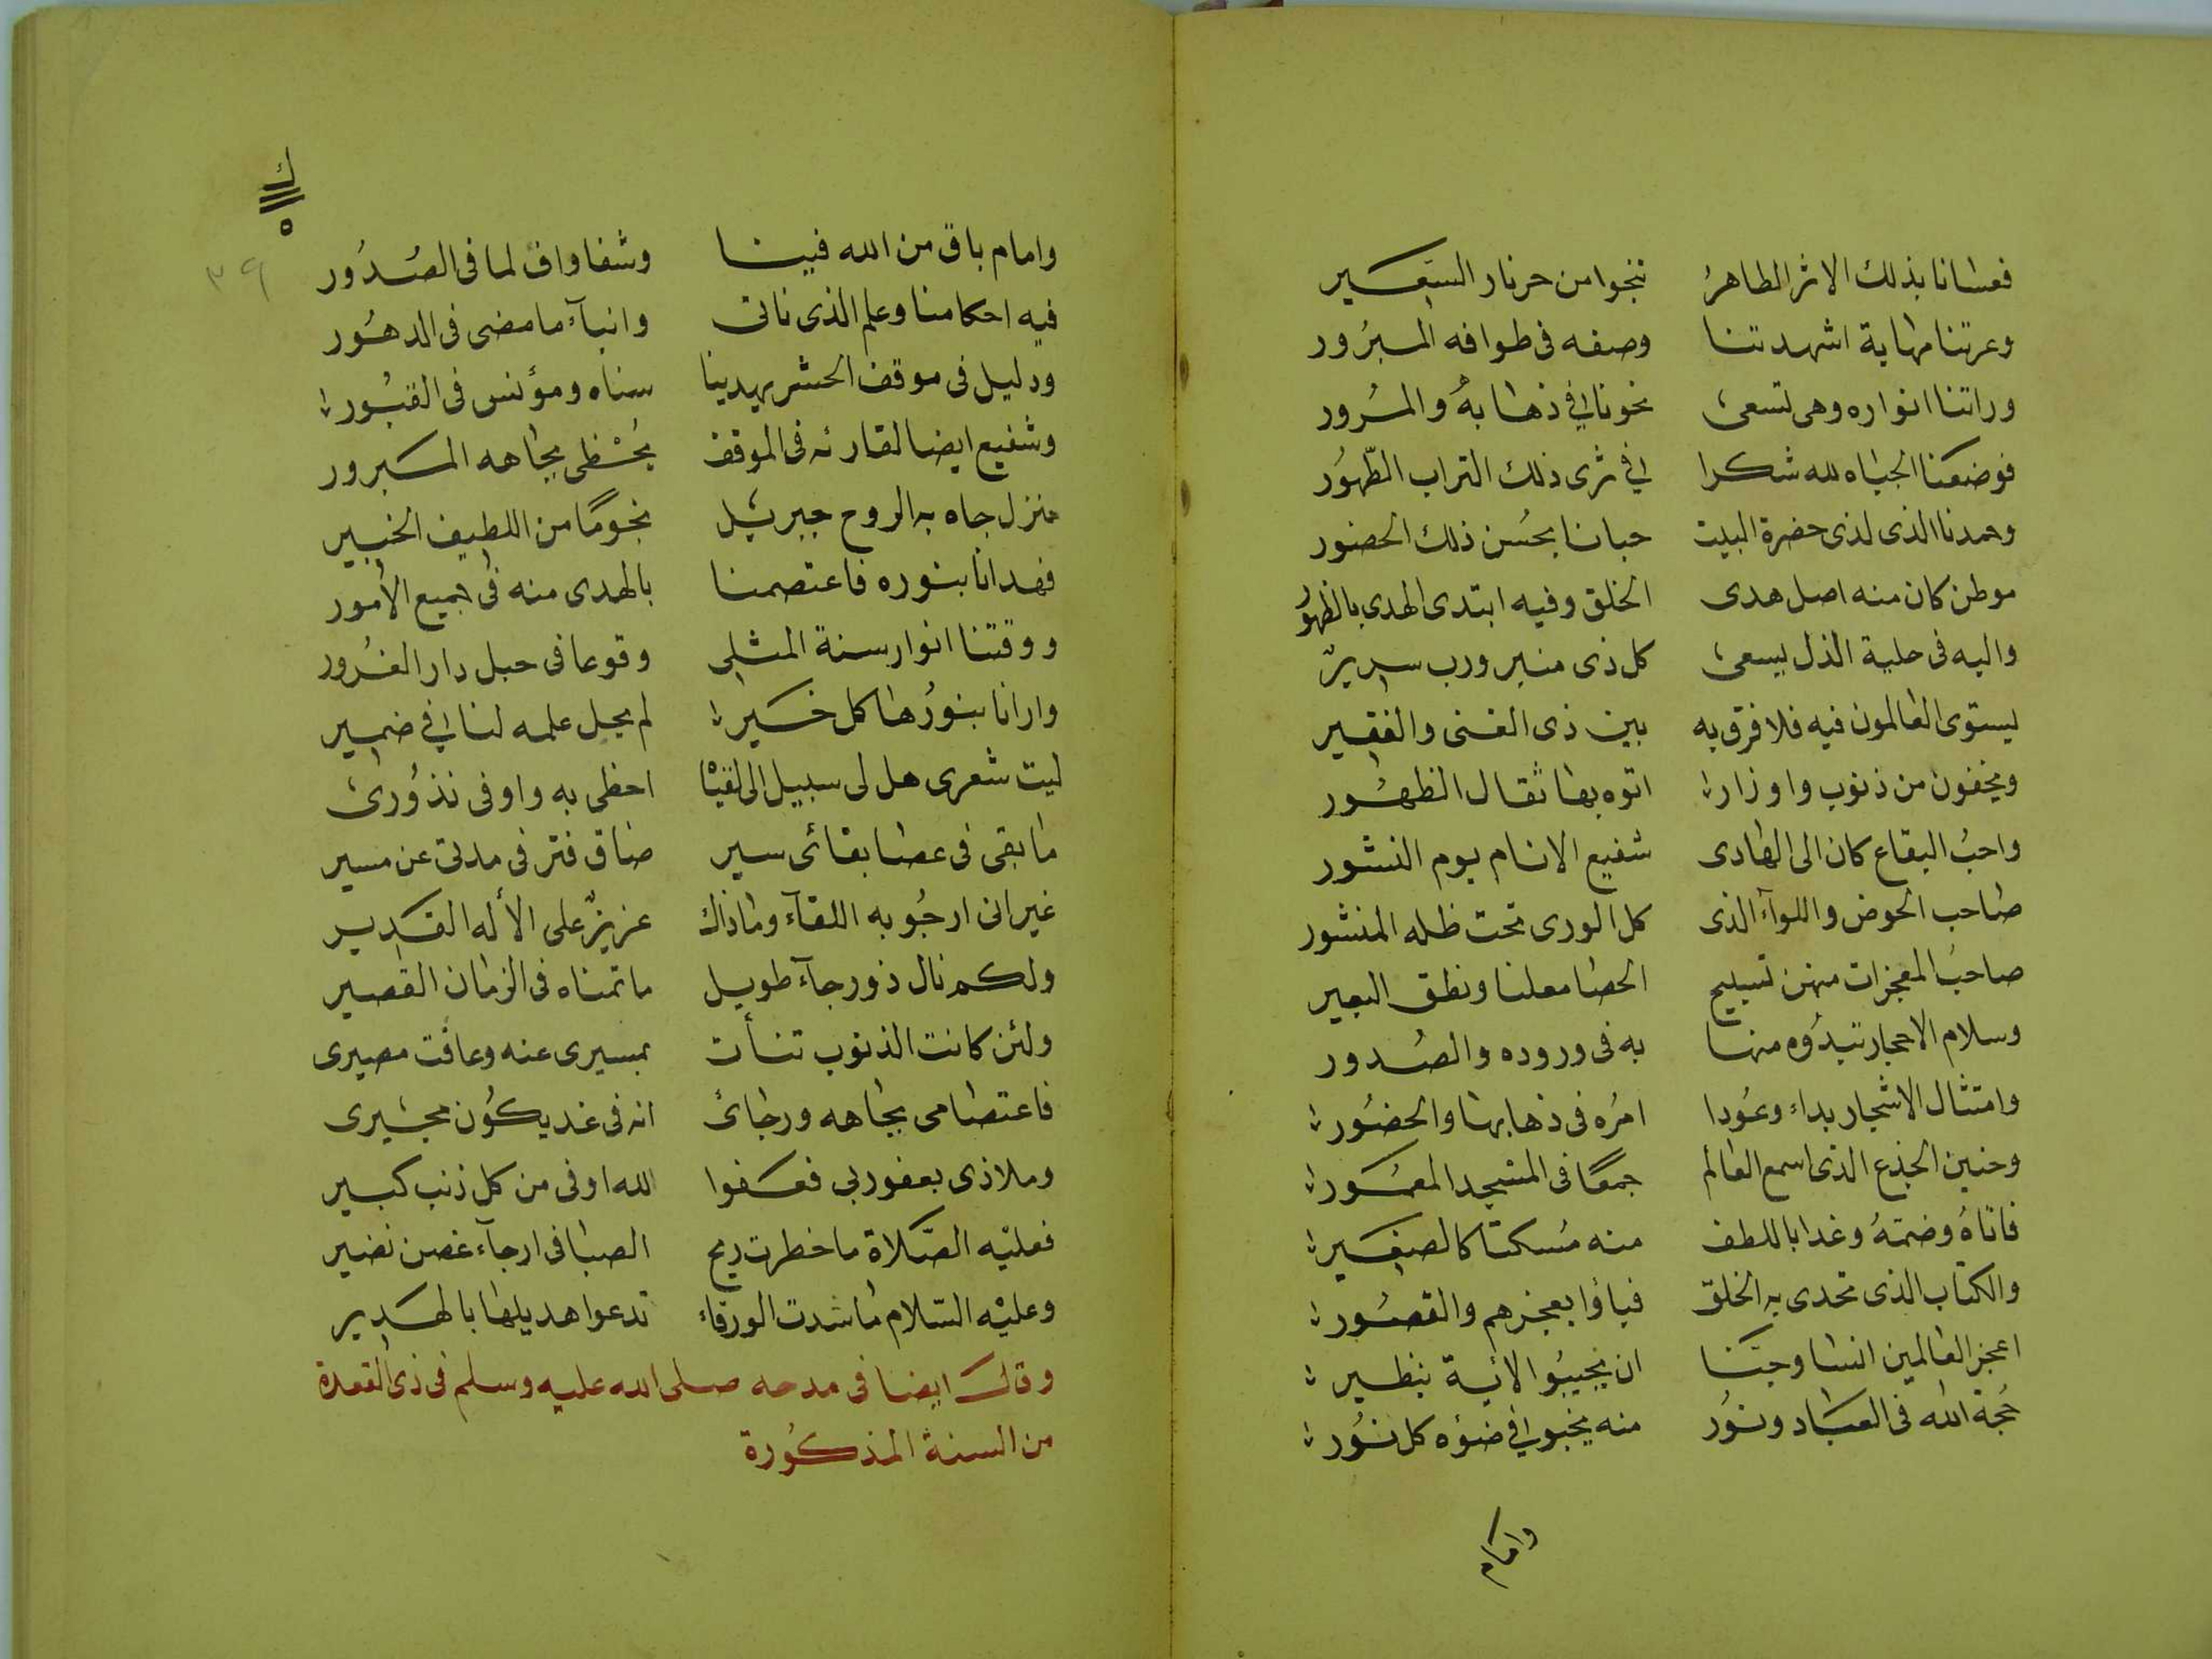 فعسانا بذلك الاثر الطاهرُ ننجوا من حر نار السّعير
وعرتنا مهابة اشهدتنا وصفه في طوافه المبرُور
وراتنا انواره وهى تسعى نحونا فى ذهابهُ والمرُور
فوضعنا الجباه لله شكرا فى ثرى ذلك التراب الطّهوُر
وحمدنا الذى لذى حضرة البيت حبانا بحُسن ذلك الحضور
موطن كان منه اصل هدى الخلق وفيه ابتدى الهدى بالظهوُر
واليه فى حلية الذل يسعى كل ذى منبر ورب سرير
يستوى العالمون فيه فلا فرق به بين ذى الغنى والفقير
ويخفون من ذنوب واوزار اتوه بها ثقال الظهُور
واحبُ البقاع كان الى الهادى شفيع الانام يوم النشور
صاحب الحوض واللوآء الذى كل الورى تحت ظله المنشور
صاحبُ المعجزات منهن تسبيح الحصا معلنا ونطق البعير
وسلام الاحجار تبدؤه منها به فى وروده والصُدور
وامتثال الاشجار بداء وعُودا امرُه فى ذهابها والحضُور
وحنين الجذع الذى اسمع العالم جمعًا فى المسجد المعمُور
فاتاهُ وضمهُ وغدا باللطف منه مُسكتا كالصغير
والكتاب الذى تحدى به الخلق فباؤا بعجزهم والقصُور
اعجز العالمين انسا وجنّا ان يجيبُوا لأية بنظير
حُجة الله فى العباد ونوُر منه يخبو فى ضوُه كل نوُر
وامام
ك
٥
٣٩
وامام باق من الله فينا وشفا واف لما فى الصُدُور
فيه احكامنا وعلم الذى ناتى وانبآء ما مضى فى الدهُور
ودليل فى موقف الحشر يهدينا سناه ومؤنس فى القبُور
وشفيع ايضا لقارئه فى الموقف يُحْظى بجاهه المبرور
منزل جاه به الروح جبرئيل نجومًا من اللطيف الخبير
فهدانا بنوره فاعتصمنا بالهدى منه فى جميع الأمور
ووقتنا انوار سنة المثلى وقوعا فى حبل دار الغرُور
وارانا بنوُرها كل خير لم يجل علمه لنا فى ضمير
ليت شعرى هل لى سبيل الى لقيْا احظى به واوفى نذوُرى
ما بقى فى عصا بقائى سير ضاق فتر فى مدتى عن مسير
غير انى ارجُو به اللقآء وماذاك عزيزٌ على الأله القدير
ولكم نال ذو رجآء طويل ما تمناه فى الزمان القصير
ولئن كانت الذنوب تنأت بمسيرى عنه وعاقت مصيرى
فاعتصامى بجاهه ورجائى انه فى غد يكوُن مجيرى
وملاذى بعفو ربى فعفوا لله اوفى من كل ذنب كبير
فعليْه الصّلاة ما خطرت ريح الصبا فى ارجآء غصن نضير
وعليْه السّلام ما شدت الورقاء تدعوا هديلها بالهدير
وقال ايضا فى مدحه صلى الله عليه وسلم فى ذى القعدة
من السنة المذكوُرة